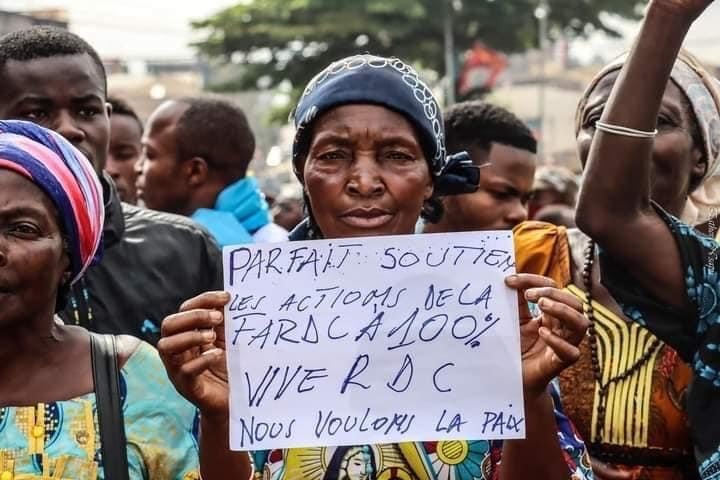 PARFAIT SOUTIEN
LES ACTIOMS DE LA
FARDC À 100%
VIVE RDC
NOUS VOULOMS LA PAIX